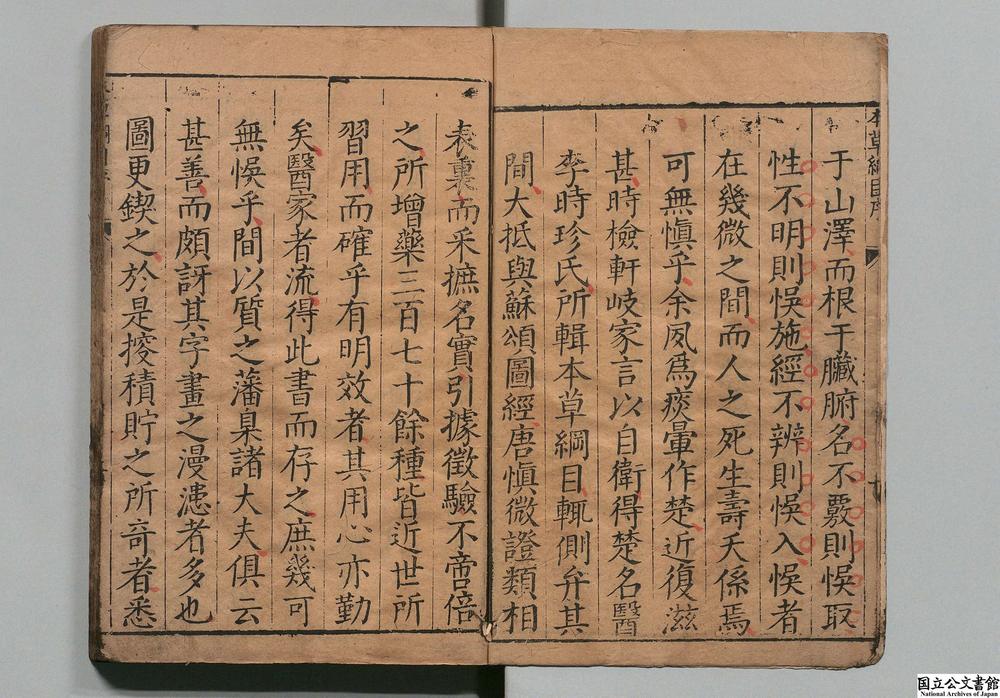 本草綱目序
于山澤而根干臟腑名不覈則悞取
性不明則悞施經不辨則悞入悞者
在幾微之間而人之死生壽夭係焉
可無愼乎余夙爲痰暈作楚近復滋
甚時檢軒岐家言以自衛得楚名醫
李時珍氏所輯本草綱目輒側弁其
間大抵與蘇頌圖經唐愼微證類相
表裏而采摭名實引據徵驗不啻倍
之所增藥三百七十餘種皆近世所
習用而確乎有明效者其用心亦勤
矣醫家者流得此書而存之庶幾可
無悞乎間以質之藩臬諸大夫俱云
甚善而頗訝其字畫之漫漶者多也
圖更鍥之於是捘積貯之所奇者悉
国立公文書館
National Archives of Japan